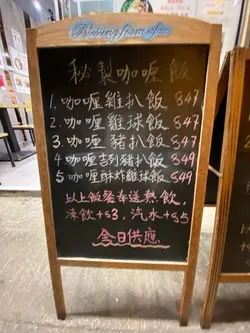 Blessing from afar
秘製咖喱飯
1. 咖喱雞扒飯 $47
2. 咖喱雞球飯 $47
3. 咖喱豬扒飯 $47
4 咖喱吉列豬扒飯 $49
5 咖喱酥炸雞球飯 $49
以上飯餐奉送熱飲,
凍飲+$3, 汽水+$5
全日供應